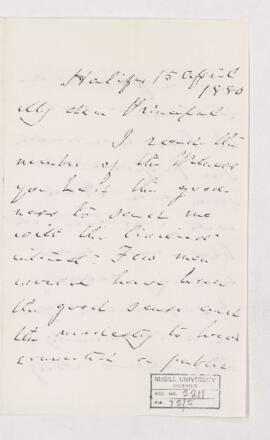 Halifax 15 April
1880
My dear Principal
I read the
number of the Witness
you had the good-
ness to send me
with the
Few men
would have had
the good sense and
the modesty to have
in public
McGILL UNIVERSITY
ARCHIVES
ACC. NO. 2211
REF.